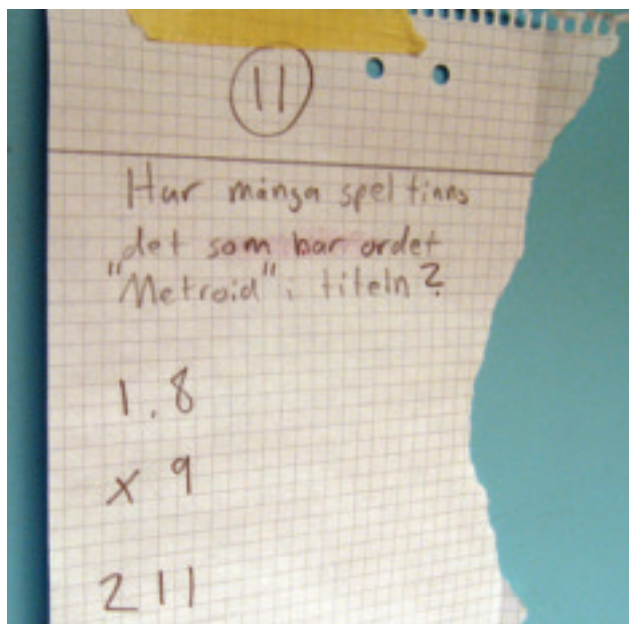 11
Hur många spel finns
det som bar ordet
"Metroid" i titeln?
1. 8
X 9
2 11